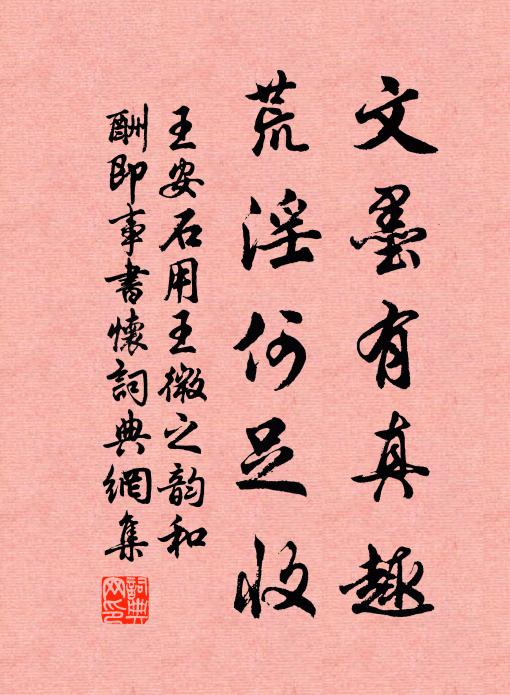 文墨有真趣
荒淫何足收
王安石用王微之韵和
酬即事書懷詞典網集
詞典网印